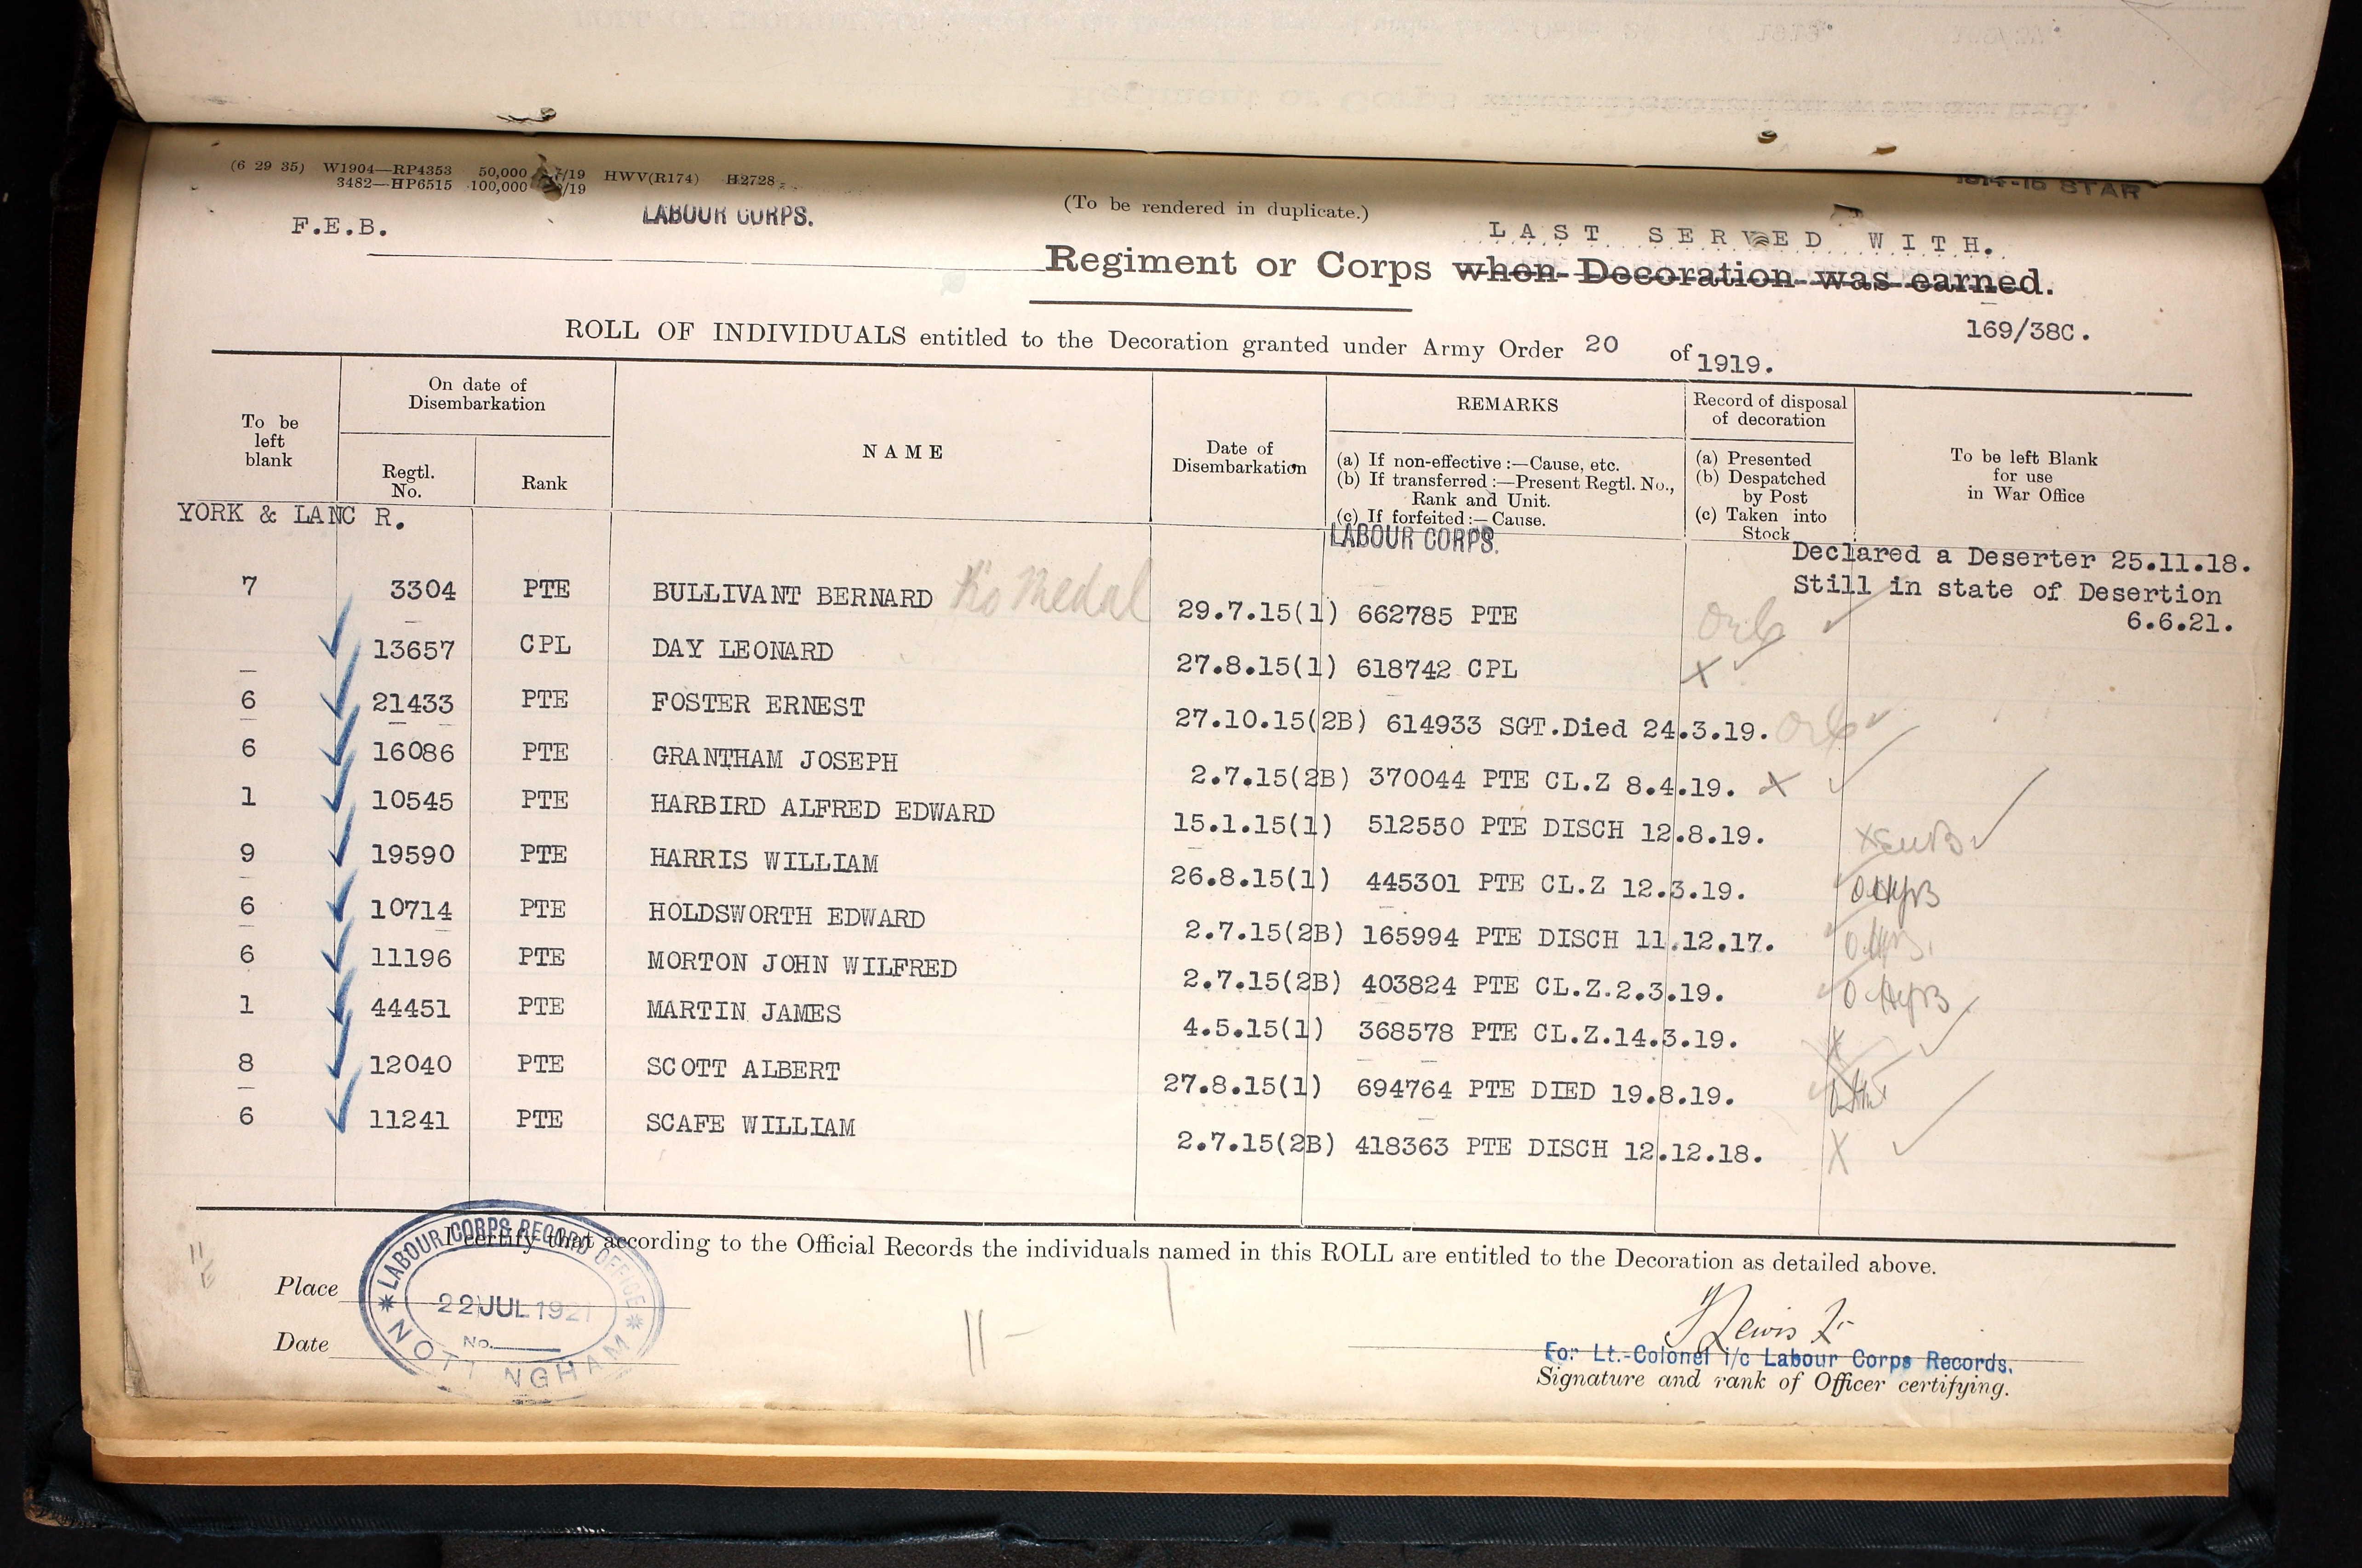 1914-15 STAR
(6 29 35) W1904—RP4353 50,000 /19 HWV(R174) H2728
3482—HP6515 100,000 /19
F.E.B.
LABOUR CORPS.
(To be rendered in duplicate.)
LAST SERVED WITH.
Regiment or Corps when Decoration was earned.
169/38C.
ROLL OF INDIVIDUALS entitled to the Decoration granted under Army Order 20 of 1919.
To be left blank
On date of Disembarkation
Regtl. No.
Rank
NAME
Date of Disembarkation
REMARKS
(a) If non-effective :—Cause, etc.
(b) If transferred :—Present Regtl. No.,
Rank and Unit.
(c) If forfeited :—Cause.
Record of disposal of decoration
(a) Presented
(b) Despatched by Post
(c) Taken into Stock
To be left Blank for use in War Office
YORK & LANC R.
LABOUR CORPS.
Declared a Deserter 25.11.18.
Still in state of Desertion
6.6.21.
7 3304 PTE BULLIVANT BERNARD No Medal 29.7.15(1) 662785 PTE
13657 CPL DAY LEONARD 27.8.15(1) 618742 CPL X
6 21433 PTE FOSTER ERNEST 27.10.15(2B) 614933 SGT.Died 24.3.19.
6 16086 PTE GRANTHAM JOSEPH 2.7.15(2B) 370044 PTE CL.Z 8.4.19. X
1 10545 PTE HARBIRD ALFRED EDWARD 15.1.15(1) 512550 PTE DISCH 12.8.19.
9 19590 PTE HARRIS WILLIAM 26.8.15(1) 445301 PTE CL.Z 12.3.19.
6 10714 PTE HOLDSWORTH EDWARD 2.7.15(2B) 165994 PTE DISCH 11.12.17.
6 11196 PTE MORTON JOHN WILFRED 2.7.15(2B) 403824 PTE CL.Z.2.3.19.
1 44451 PTE MARTIN JAMES 4.5.15(1) 368578 PTE CL.Z.14.3.19. X
8 12040 PTE SCOTT ALBERT 27.8.15(1) 694764 PTE DIED 19.8.19.
6 11241 PTE SCAFE WILLIAM 2.7.15(2B) 418363 PTE DISCH 12.12.18. X
I certify that according to the Official Records the individuals named in this ROLL are entitled to the Decoration as detailed above.
Place
Date
LABOUR CORPS RECORD OFFICE
22 JUL 1921
No.
NOTTINGHAM
11
Lewis Lt
For Lt.-Colonel i/c Labour Corps Records.
Signature and rank of Officer certifying.